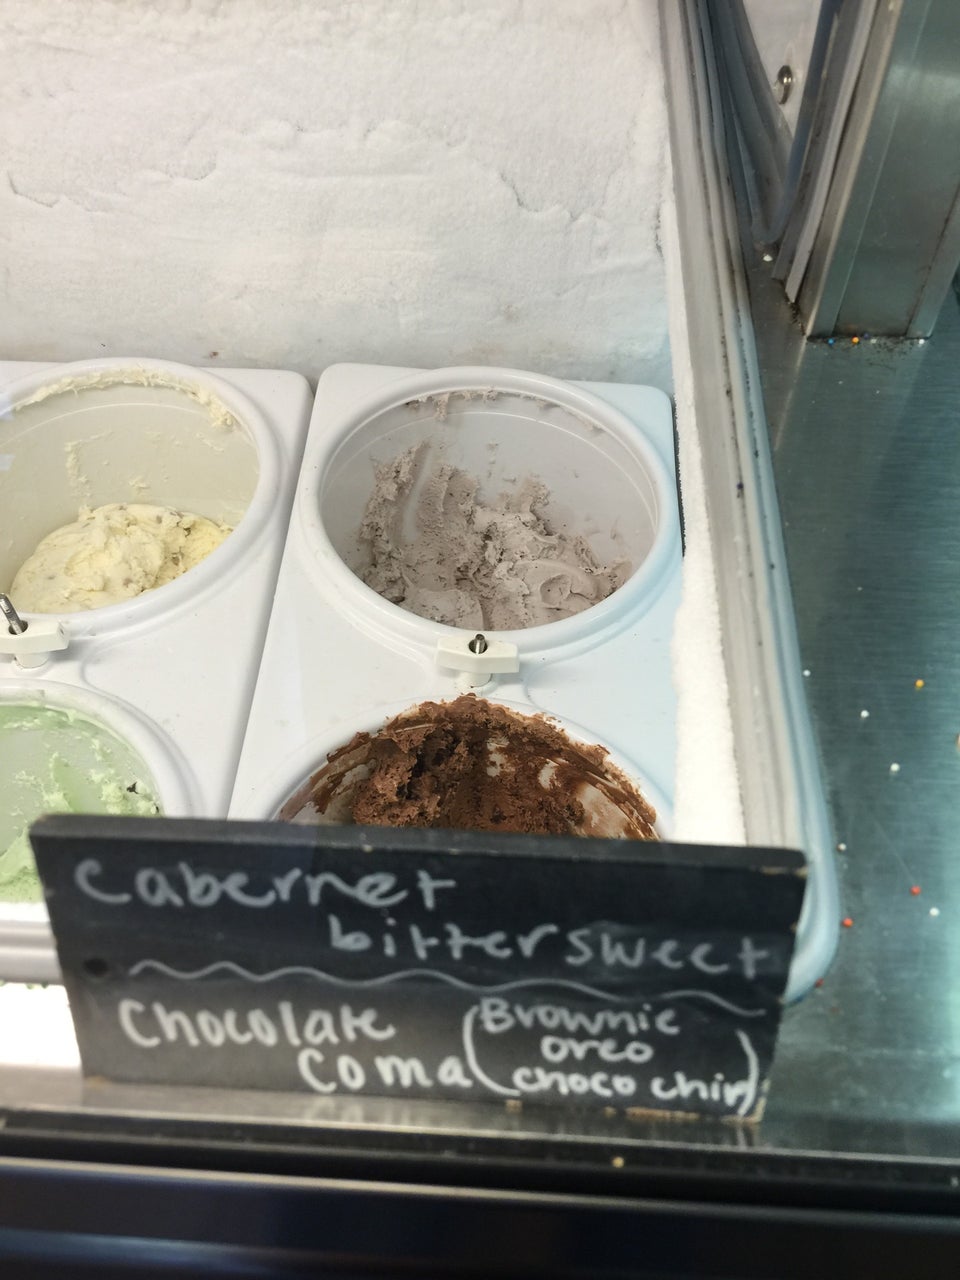 Cabernet
bittersweet
Chocolate
Coma (Brownie
oreo
choco chip)